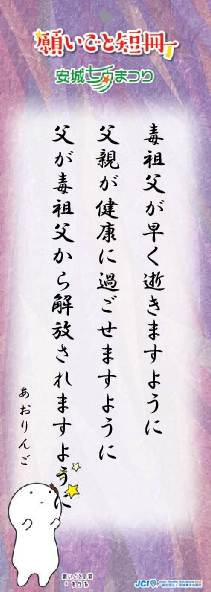 願いごと短冊
安城七夕まつり
毒祖父が早く逝きますように
父親が健康に過ごせますように
父が毒祖父から解放されますように
あおりんご
JCI